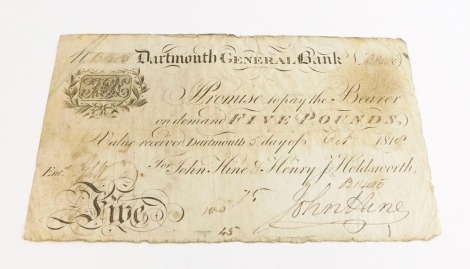 Dartmouth General Bank
I Promise to pay the Bearer
on demand FIVE POUNDS,
Value received Dartmouth 5 day of Oct 1818
Entd.
For John Hine & Henry J Holdsworth,
Five
75
John Hine
45